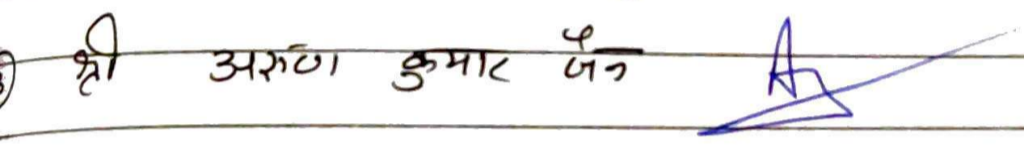 श्री अरुण कुमार जैन